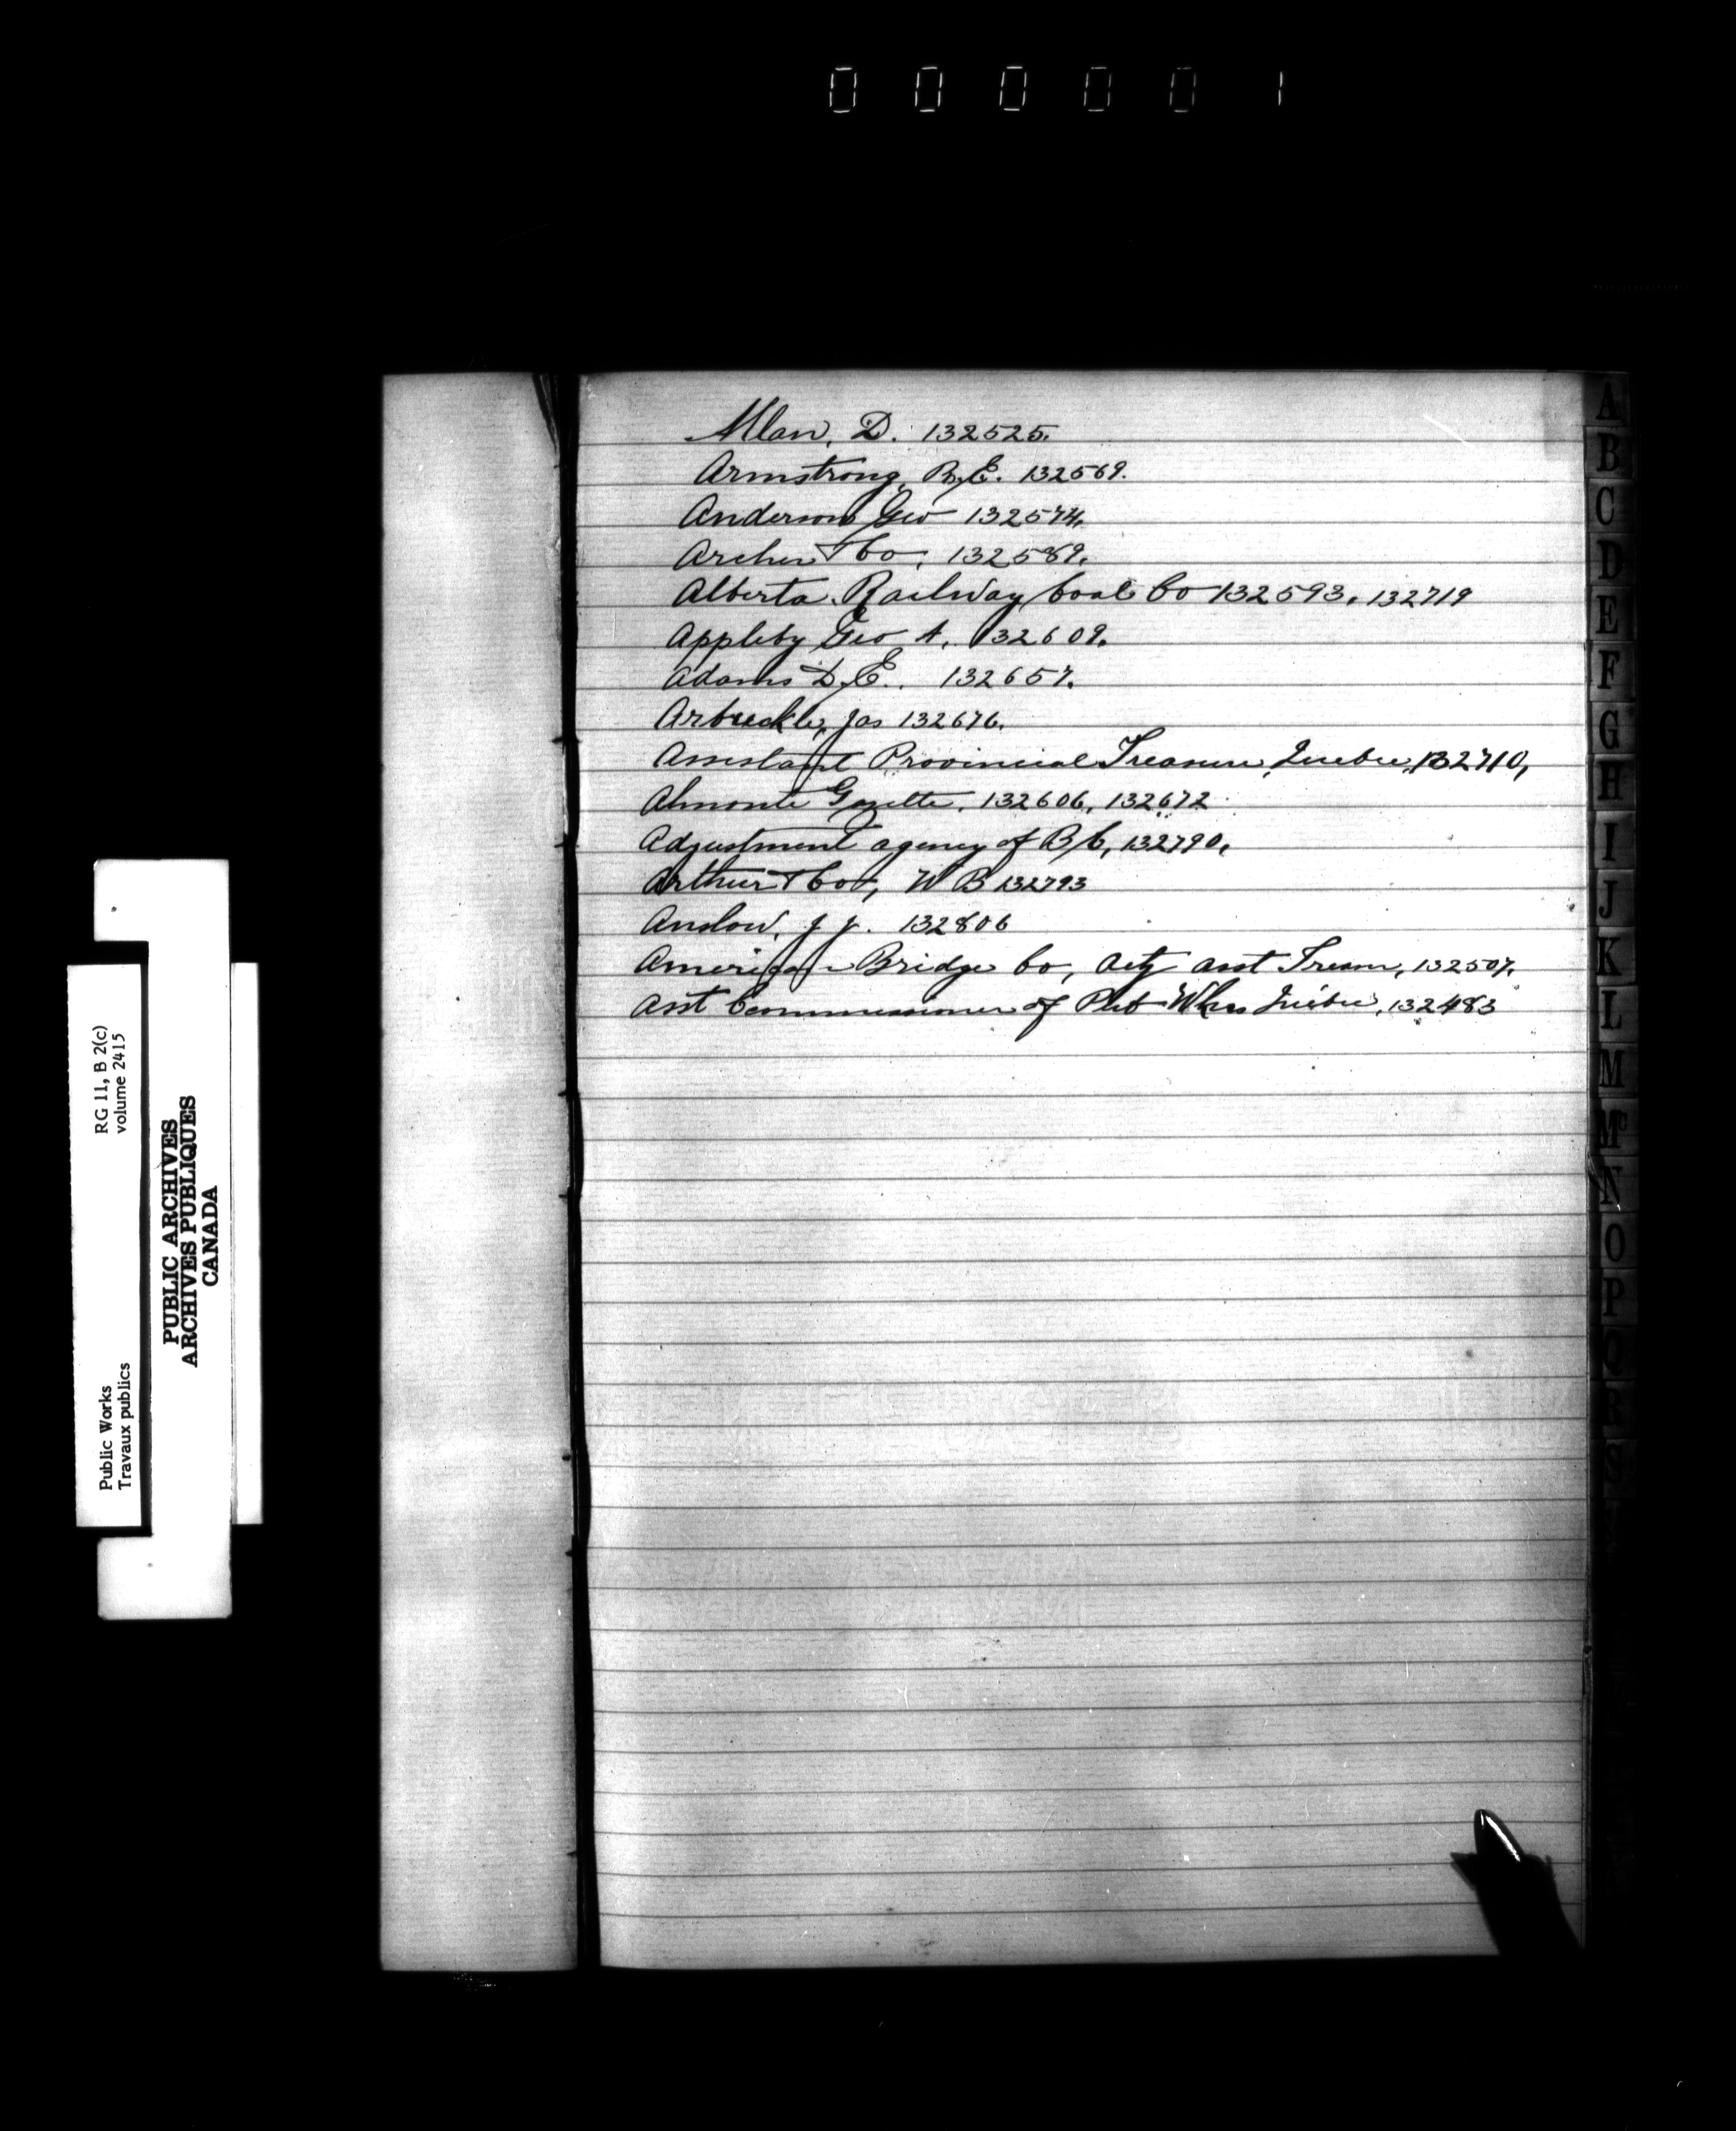 0 0 0 0 0 1
Allan, D. 132525.
Armstrong, R.E. 132569.
Anderson Geo 132574.
Archer & Co, 132589.
Alberta Railway Coal Co 132593, 132719
Appleby Geo A. 132609.
Adams D.E. 132657.
Arbuckle, Jas 132676.
Assistant Provincial Treasurer, Quebec, 132710,
Almonte Gazette, 132606, 132672
Adjustment agency of B.C, 132790,
Arthur & Co, W B 132793
Anslow, J J. 132806
American Bridge Co, Actg asst Treasr, 132507,
Asst Commissioner of Pub Wks Quebec, 132483
A
B
C
D
E
F
G
H
I
J
K
L
M
Mc
N
O
P
Q
R
S
RG 11, B 2(c)
volume 2415
Public Works
Travaux publics
PUBLIC ARCHIVES
ARCHIVES PUBLIQUES
CANADA